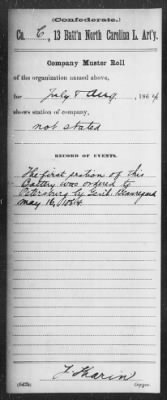 (Confederate.)
Co. C, 13 Batt'n North Carolina L. Art'y.
Company Muster Roll
of the organization named above,
for July & Aug, 1864
shows station of company,
not stated
RECORD OF EVENTS.
The first section of this
Battery was ordered to
Petersburg by Genl. Beauregard
May 16, 1864
(642b)
Copyist.